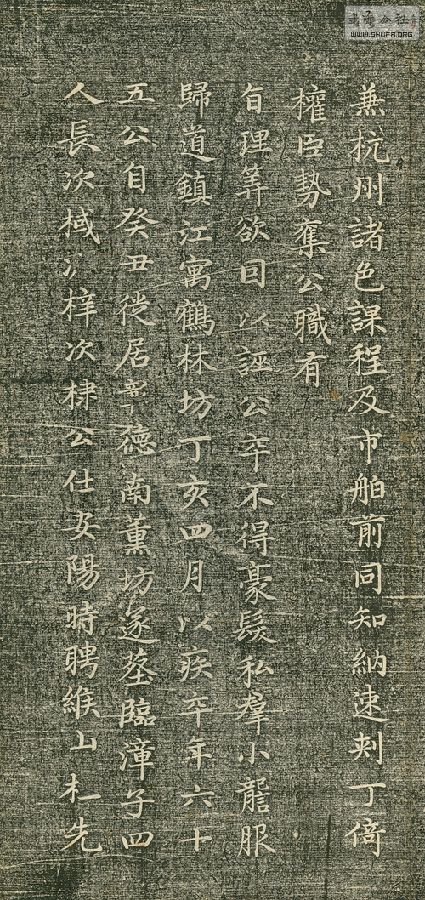 兼杭州諸色課程及市舶前同知納速刺丁倚
權臣勢奪公職有
旨理筭欲回以誣公卒不得豪髮私羣小讋服
歸道鎮江寓鶴林坊丁亥四月以疾卒年六十
五公自癸丑徙居彰德南薫坊遂塟臨漳子四
人長次棫次梓次棣公仕安陽時聘緱山杜先
书法空间
WWW.SHUFA.ORG